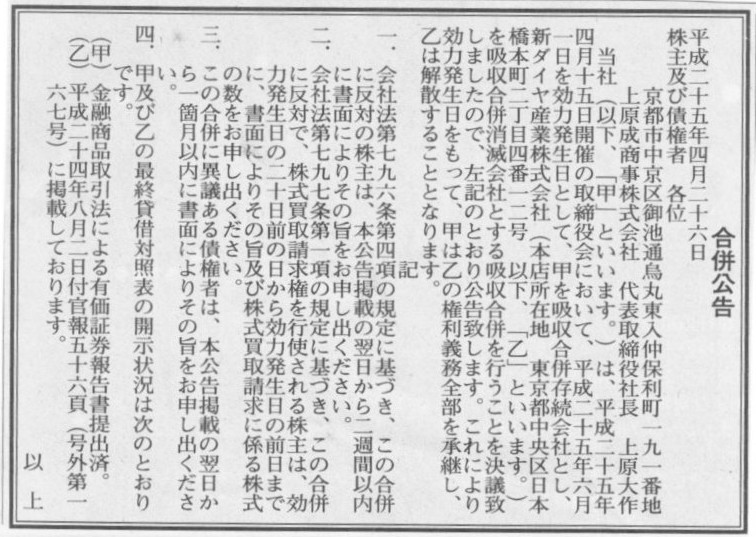 合併公告
平成二十五年四月二十六日
株主及び債権者　各位
京都市中京区御池通烏丸東入仲保利町一九一番地
上原成商事株式会社　代表取締役社長　上原大作
当社（以下、「甲」といいます。）は、平成二十五年
四月十五日開催の取締役会において、平成二十五年六月
一日を効力発生日として、甲を吸収合併存続会社とし、
新ダイヤ産業株式会社（本店所在地　東京都中央区日本
橋本町二丁目四番一二号　以下、「乙」といいます。）
を吸収合併消滅会社とする吸収合併を行うことを決議致
しましたので、左記のとおり公告致します。これにより
効力発生日をもって、甲は乙の権利義務全部を承継し、
乙は解散することとなります。
記
一．会社法第七九六条第四項の規定に基づき、この合併
に反対の株主は、本公告掲載の翌日から二週間以内
に書面によりその旨をお申し出ください。
二．会社法第七九七条第一項の規定に基づき、この合併
に反対で、株式買取請求権を行使される株主は、効
力発生日の二十日前の日から効力発生日の前日まで
に、書面によりその旨及び株式買取請求に係る株式
の数をお申し出ください。
三．この合併に異議ある債権者は、本公告掲載の翌日か
ら一箇月以内に書面によりその旨をお申し出くださ
い。
四．甲及び乙の最終貸借対照表の開示状況は次のとおり
です。
（甲）金融商品取引法による有価証券報告書提出済。
（乙）平成二十四年八月二日付官報五十六頁（号外第一
六七号）に掲載しております。
以上